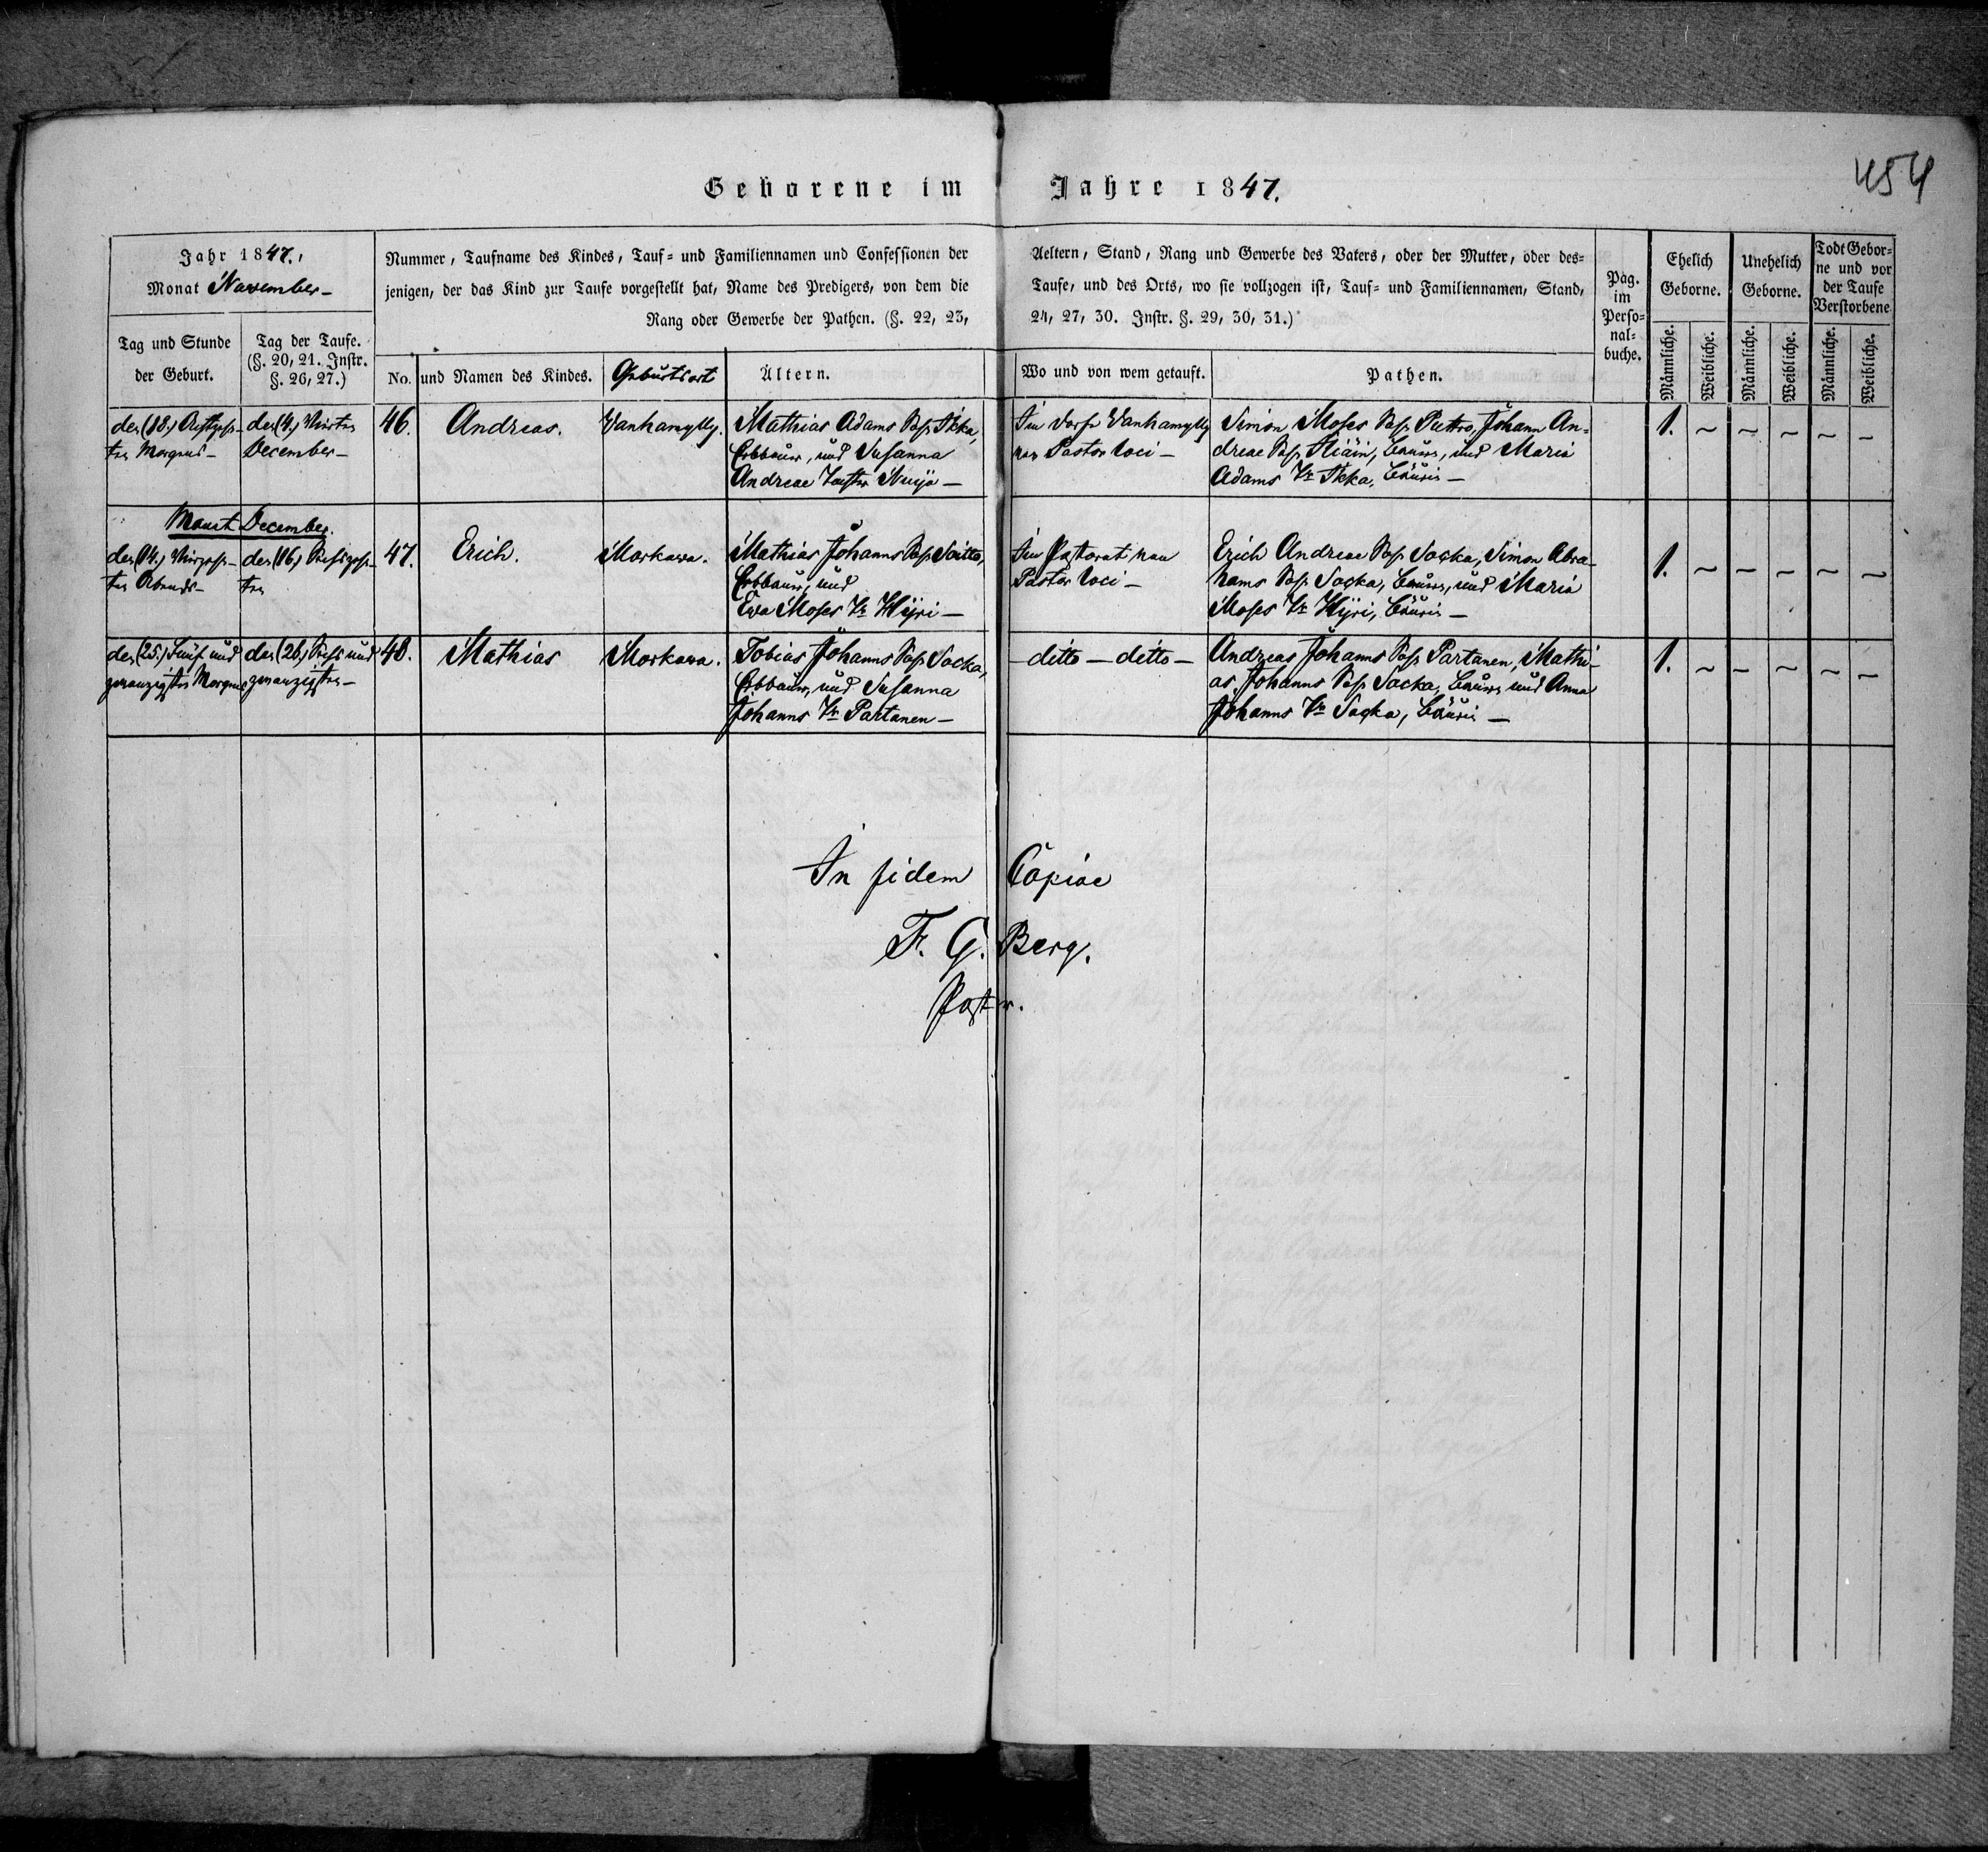 454
Geborene im Jahre 1847.
Jahr 1847.,
Monat November
Tag und Stunde
der Geburt.
Tag der Taufe.
(§. 20, 21. Instr.
§. 26, 27.)
Nummer, Taufname des Kindes, Tauf- und Familiennamen und Confessionen der
jenigen, der das Kind zur Taufe vorgestellt hat, Name des Predigers, von dem die
Rang oder Gewerbe der Pathen. (§. 22, 23,
No. und Namen des Kindes. Geburtsort Ältern.
Aeltern, Stand, Rang und Gewerbe des Vaters, oder der Mutter, oder des-
Taufe, und des Orts, wo sie vollzogen ist, Tauf- und Familiennamen, Stand,
24, 27, 30. Instr. §. 29, 30, 31.)
Wo und von wem getauft. Pathen.
Pag.
im
Perso-
nal-
buche.
Ehelich
Geborne.
Unehelich
Geborne.
Todt Gebor-
ne und vor
der Taufe
Verstorbene
Männliche. Weibliche. Männliche. Weibliche. Männliche. Weibliche.
den (18.) Achtzehn-
ten Morgens
den (4.) Vierten
December
46. Andreas. Vanhamylly.
Mathias Adams Sohn Ikka,
Erbbauer, und Susanna
Andreae Tochter
Im Dorfe Vanhamylly
von Pastor loci
Simon Moses Sohn Putro, Johann An-
dreae Sohn Bauern, und Maria
Adams Tr Ikka, Bäuerin
1.
Monat December.
den (14.) Vierzehn-
ten Abends
den (16.) Sechszehn-
ten
47. Erich. Morkawa.
Mathias Johanns Sohn Soitto,
Erbbauer, und
Ewa Moses Tr Hyri
Im Pastorat von
Pastor loci
Erich Andreae Sohn Sacka, Simon Abra-
hams Sohn Sacka, Bauern, und Maria
Moses Tr Hyri, Bäuerin
1.
den (25.) Fünf und
zwanzigsten Morgens
den (26.) Sechs und
zwanzigsten
48. Mathias Morkawa.
Tobias Johanns Sohn Sacka,
Erbbauer, und Susanna
Johanns Tr Partanen
ditto ditto
Andreas Johanns Sohn Partanen, Mathi-
as Johanns Sohn Sacka, Bauern und Anna
Johanns Tr Sacka, Bäuerin
1.
In fidem Copiae
F. G. Berg.
Pastor.